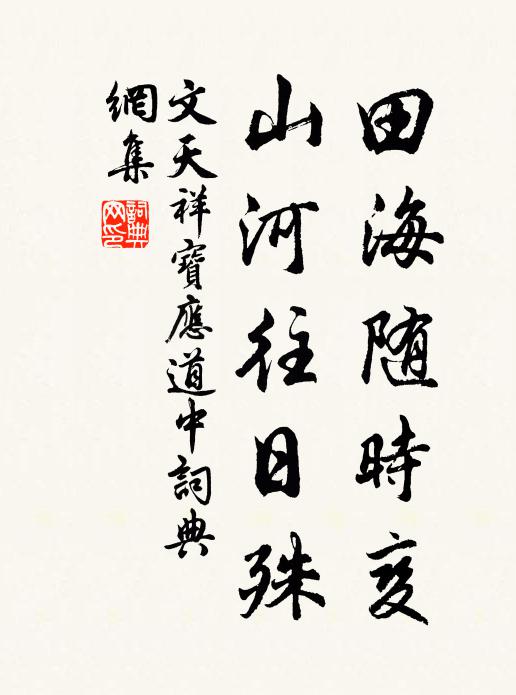 田海随時変
山河往日殊
文天祥寶應道中詞典
網集
詞典
网印